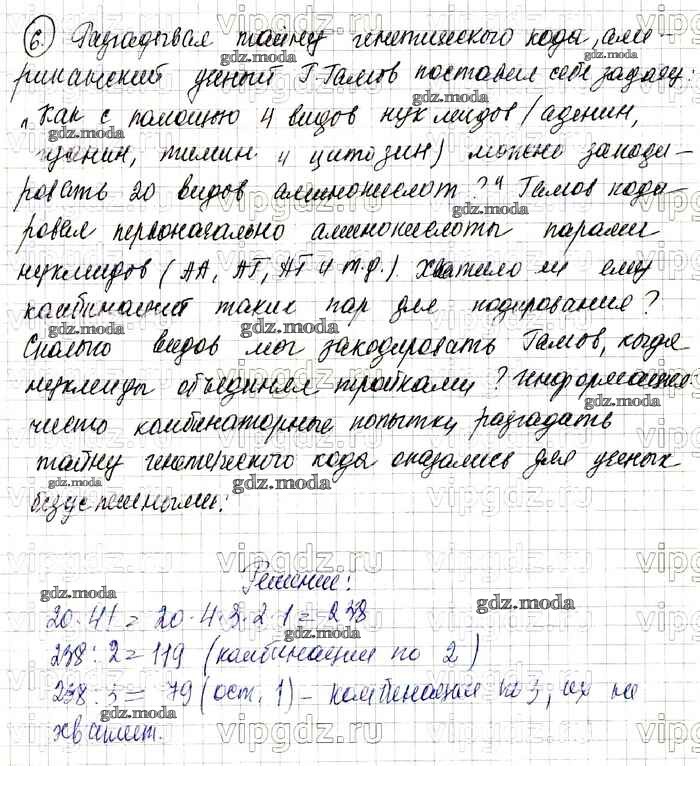 6. Разгадывая тайну генетического кода, аме-
риканский ученый Г. Гамов поставил себе задачу:
„Как с помощью 4 видов нуклеидов (аденин,
гуанин, тимин и цитозин) можно закоди-
ровать 20 видов аминокислот?" Гамов коди-
ровал первоначально аминокислоты парами
нуклеидов (АА, АГ, АТ и т.д.). Хватило ли ему
комбинаций таких пар для кодирования?
Сколько видов мог закодировать Гамов, когда
нуклеиды объединял тройками?
чисто комбинаторные попытки разгадать
тайну генетического кода оказались для ученых
безуспешными.
Решение:
20·4! = 20·4·3·2·1 = 238
238:2 = 119 (комбинации по 2)
238:3 = 79 (ост. 1) – комбинация по 3, их не
хватает.
gdz.moda
vipgdz.ru